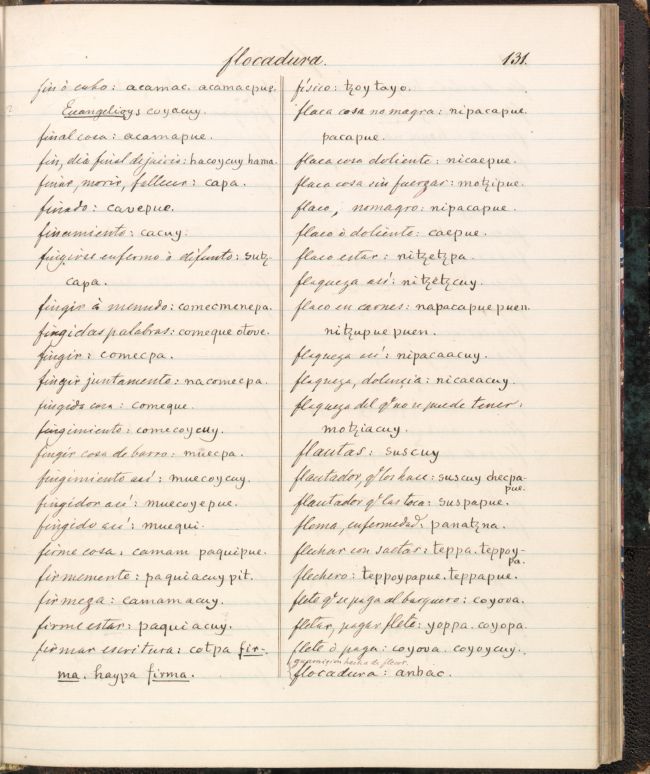 flocadura.
131.
fin ò cabo: acamac. acamacpue.
Euangelioys coyacuy.
final cosa: acamapue.
fin, dia final de juicio: hacoycuy hama.
finar, morir, fallecer: capa.
finado: cavepue.
finamiento: cacuy.
fingirse enfermo ò difunto: sutz-
capa.
fingir à menudo: comecmenepa.
fingidas palabras: comeque otove.
fingir: comecpa.
fingir juntamente: nacomecpa.
fingida cosa: comeque.
fingimiento: comecoycuy.
fingir cosa de barro: muecpa.
fingimiento asi: muecoycuy.
fingidor asi: muecoyepue.
fingido asi: muequi.
firme cosa: camam paquipue.
firmemente: paquiacuy pit.
firmeza: camamacuy.
firme estar: paquiacuy.
firmar escritura: cotpa fir-
ma. haypa firma.
físico: tzoytayo.
flaca cosa no magra: nipacapue.
pacapue.
flaca cosa doliente: nicaepue.
flaca cosa sin fuerzas: motzipue.
flaco, nomagro: nipacapue.
flaco ò doliente: caepue.
flaco estar: nitzetzpa.
flaqueza asi: nitzetzcuy.
flaco en carnes: napacapue puen.
nitzupue puen.
flaqueza asi: nipacaacuy.
flaqueza, dolencia: nicaeacuy.
flaqueza del q̃ no se puede tener:
motziacuy.
flautas: suscuy
flautador, q̃ los hace: suscuy checpa-
pue.
flautador q̃ las toca: suspapue.
floma, enfermedad: panatzna.
flechar con saetas: teppa. teppoy-
pa.
flechero: teppoypapue. teppapue.
flete q̃ se paga al barquero: coyova.
fletar, pagar flete: yoppa. coyopa.
flete ò paga: coyova. coyoycuy.
guarnicion hecha de flecos.
flocadura: anbac.